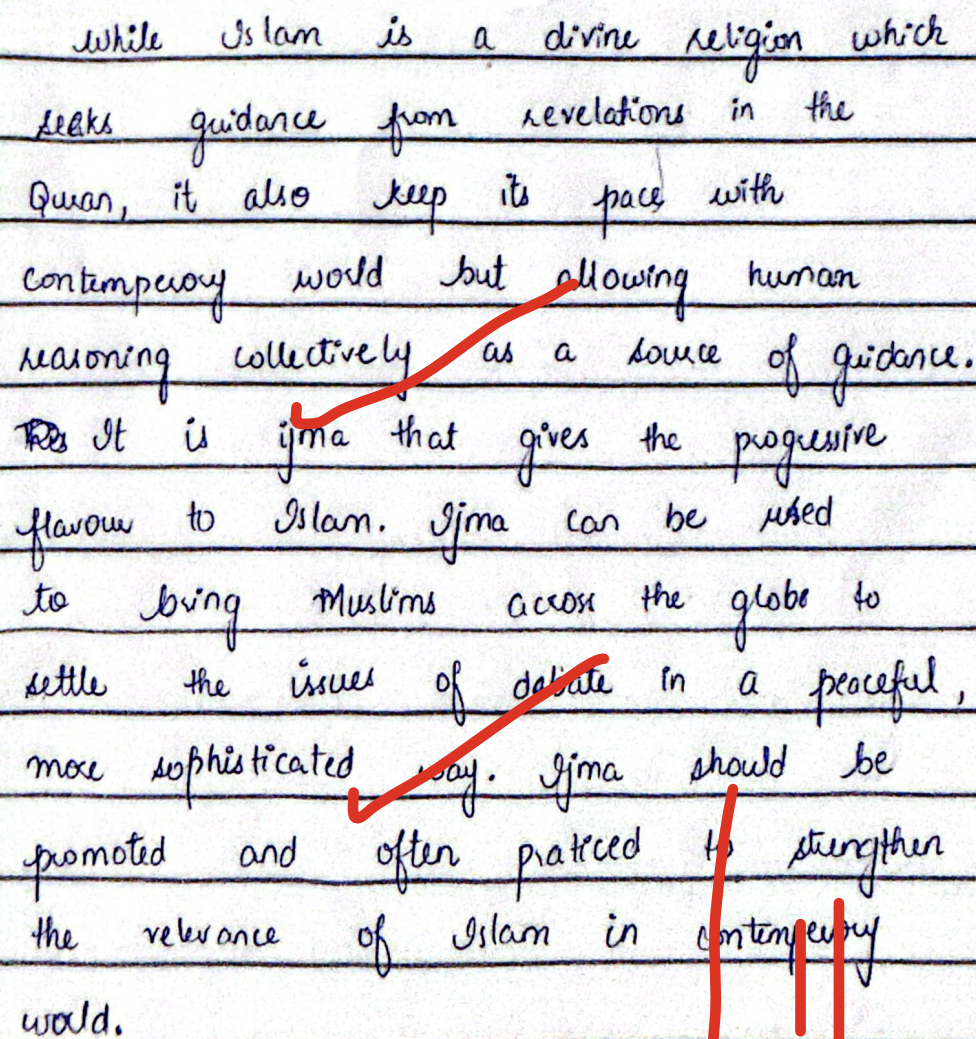 while Islam is a divine religion which
seeks guidance from revelations in the
Quran, it also keep its pace with
contemperory world but allowing human
reasoning collectively as a source of guidance.
It is ijma that gives the progressive
flavour to Islam. Ijma can be used
to bring Muslims across the globe to
settle the issues of debate in a peaceful,
more sophisticated way. Ijma should be
promoted and often praticed to strengthen
the relevance of Islam in contemperory
world.